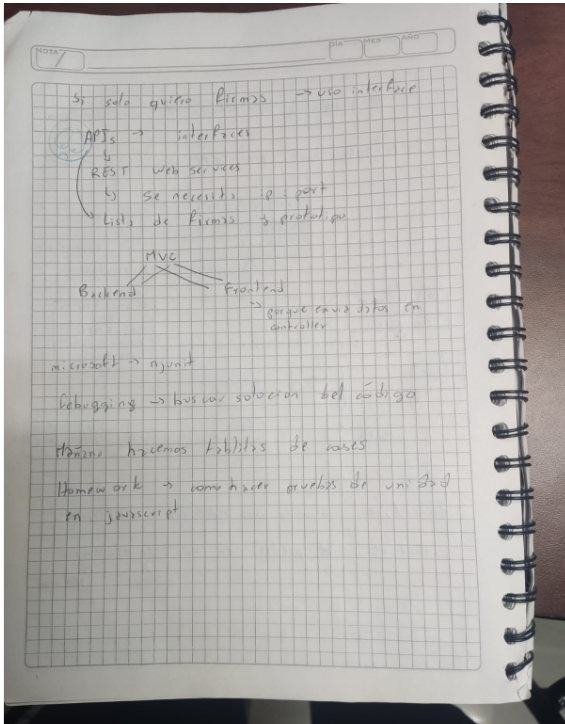 NOTA
DIA MES AÑO
Si solo quiero firmas → uso interface
APIs → interfaces
REST web services
↳ se necesita ip, port
Lista de firmas y prototipo
MVC
Backend Frontend
↳ porque envia datos en
controller
microsoft → njunit
Debugging → buscar solucion del código
Mañana hacemos tablitas de cases
Homework → como hacer pruebas de unidad
en javascript